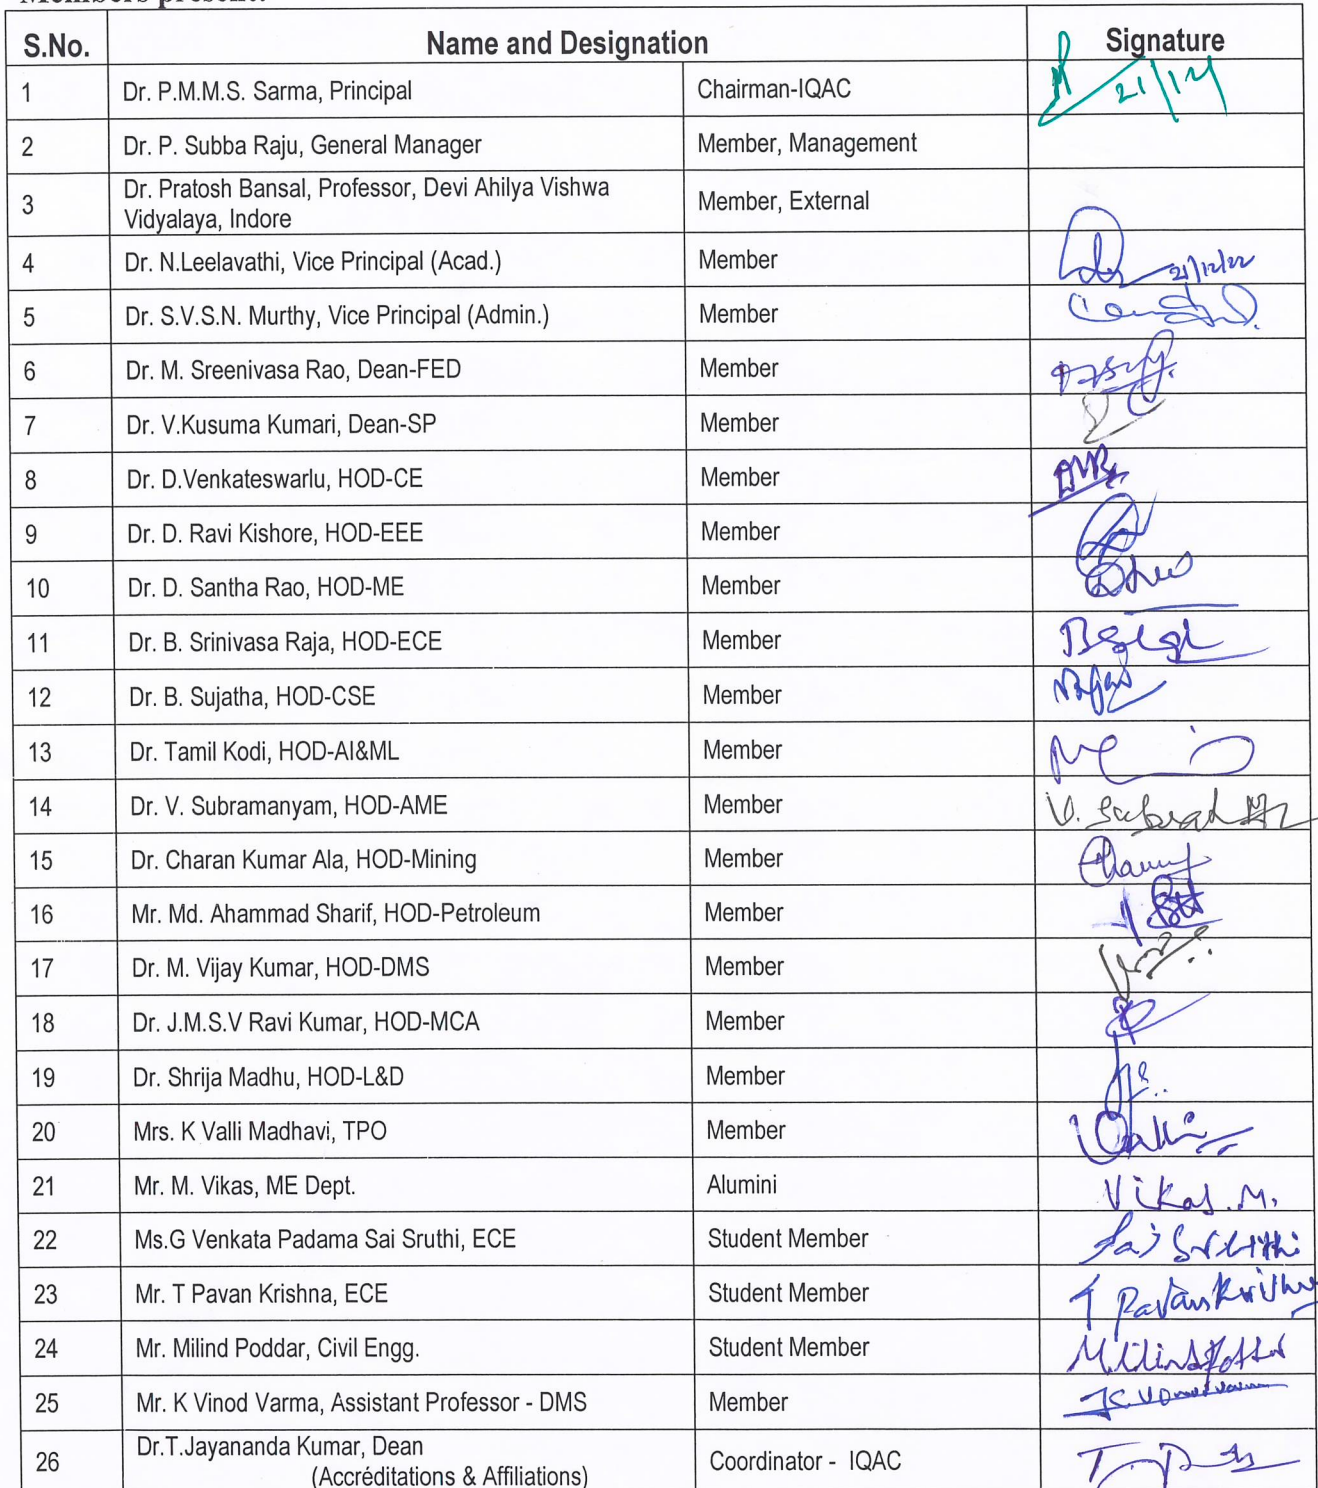 Members present:
S.No. Name and Designation Signature
1 Dr. P.M.M.S. Sarma, Principal Chairman-IQAC 21/12/
2 Dr. P. Subba Raju, General Manager Member, Management
3 Dr. Pratosh Bansal, Professor, Devi Ahilya Vishwa
Vidyalaya, Indore Member, External
4 Dr. N.Leelavathi, Vice Principal (Acad.) Member 21/12/22
5 Dr. S.V.S.N. Murthy, Vice Principal (Admin.) Member
6 Dr. M. Sreenivasa Rao, Dean-FED Member
7 Dr. V.Kusuma Kumari, Dean-SP Member
8 Dr. D.Venkateswarlu, HOD-CE Member
9 Dr. D. Ravi Kishore, HOD-EEE Member
10 Dr. D. Santha Rao, HOD-ME Member
11 Dr. B. Srinivasa Raja, HOD-ECE Member
12 Dr. B. Sujatha, HOD-CSE Member
13 Dr. Tamil Kodi, HOD-AI&ML Member
14 Dr. V. Subramanyam, HOD-AME Member
15 Dr. Charan Kumar Ala, HOD-Mining Member
16 Mr. Md. Ahammad Sharif, HOD-Petroleum Member
17 Dr. M. Vijay Kumar, HOD-DMS Member
18 Dr. J.M.S.V Ravi Kumar, HOD-MCA Member
19 Dr. Shrija Madhu, HOD-L&D Member
20 Mrs. K Valli Madhavi, TPO Member
21 Mr. M. Vikas, ME Dept. Alumini Vikas. M.
22 Ms.G Venkata Padama Sai Sruthi, ECE Student Member Sai Sruthi
23 Mr. T Pavan Krishna, ECE Student Member T Pavan Krishna
24 Mr. Milind Poddar, Civil Engg. Student Member
25 Mr. K Vinod Varma, Assistant Professor - DMS Member
26 Dr.T.Jayananda Kumar, Dean
(Accréditations & Affiliations) Coordinator - IQAC